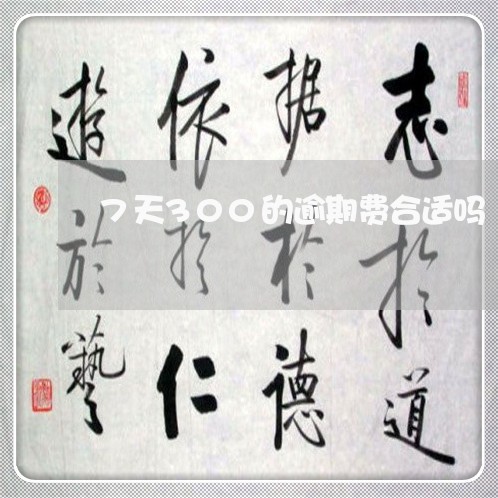 志於道
据於德
依於仁
遊於藝
7天300的逾期费合适吗